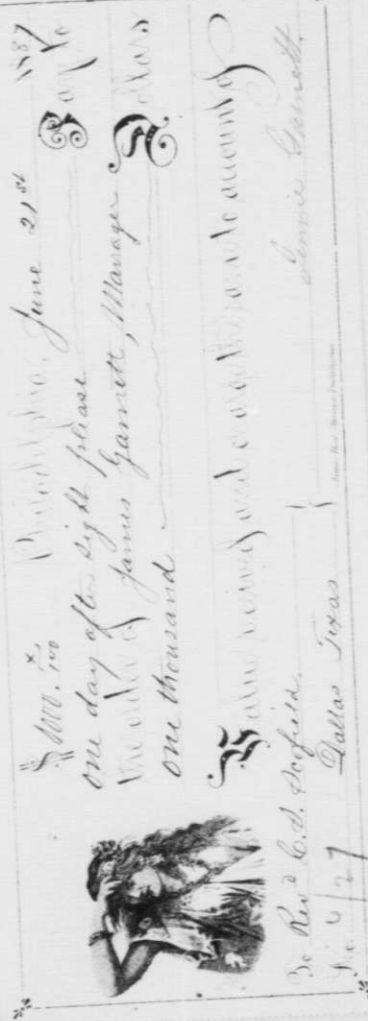 $1000.00 Philadelphia, June 21st 1887
One day after sight please Pay to
the order of James Garnett, Manager
One thousand Dollars
Value received and charge the same to account of
To Rev'd C. I. Scofield Jennie Garnett.
Dallas Texas